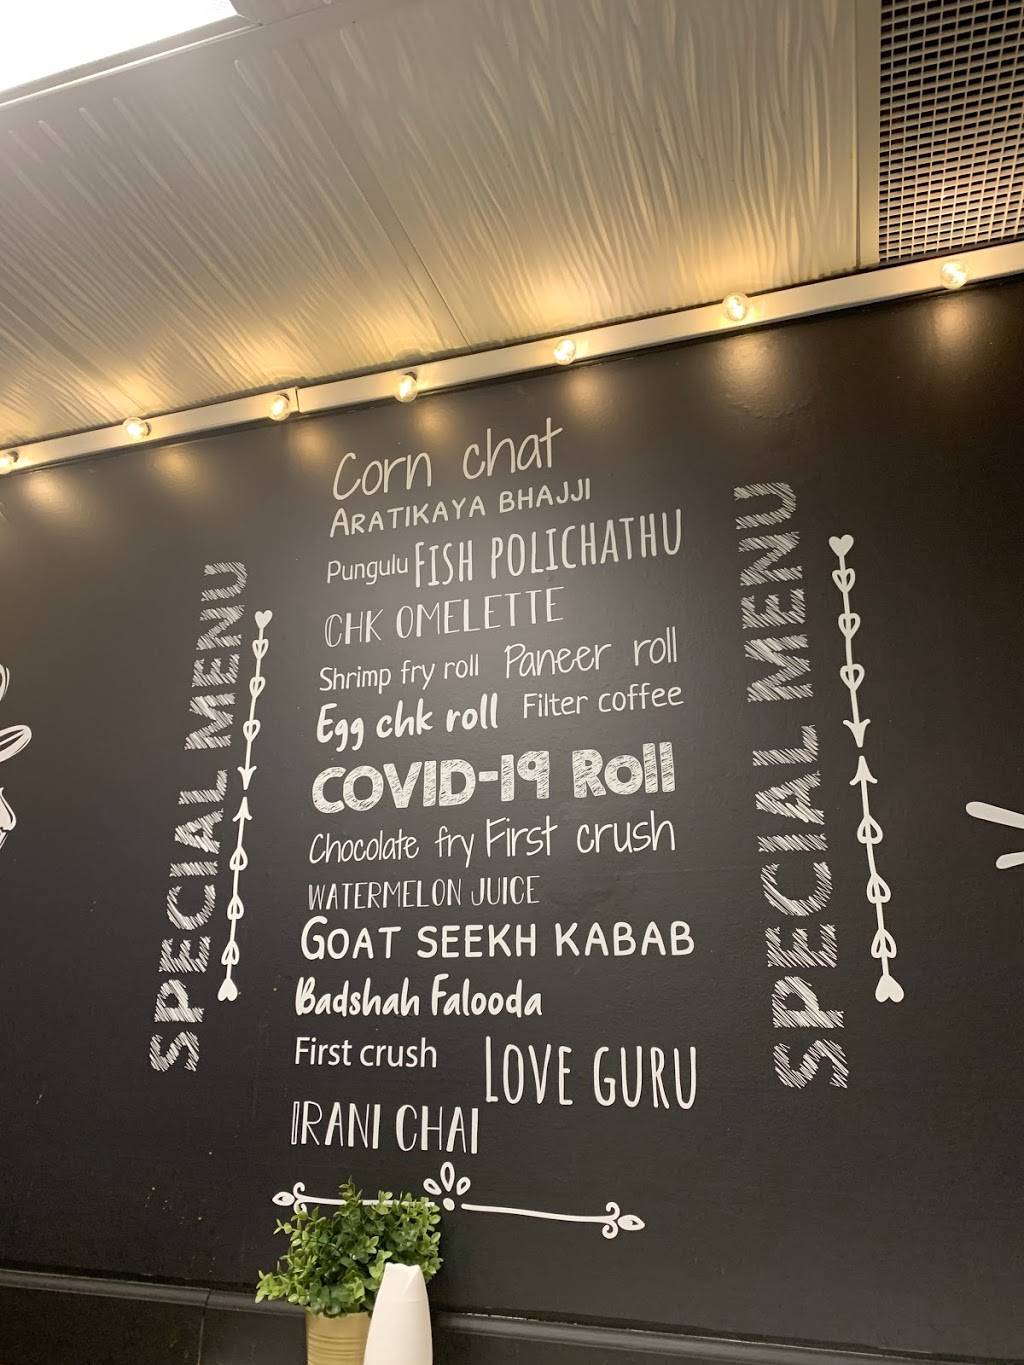 SPECIAL MENU
Corn chat
ARATIKAYA BHAJJI
Pungulu FISH POLICHATHU
CHK OMELETTE
Shrimp fry roll Paneer roll
Egg chk roll Filter coffee
COVID-19 Roll
Chocolate fry First crush
WATERMELON JUICE
GOAT SEEKH KABAB
Badshah Falooda
First crush LOVE GURU
IRANI CHAI
SPECIAL MENU